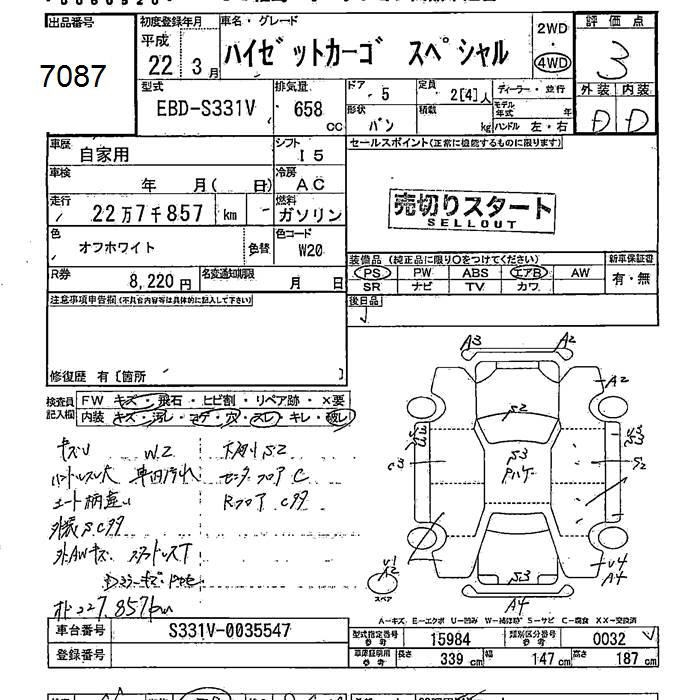 出品番号
7087
初度登録年月
平成
22 3月
車名・グレード
ハイゼットカーゴ スペシャル
2WD
4WD
評価点
3
外装 内装
D D
型式
EBD-S331V
排気量
658
CC
ドア
5
定員
2[4]人
ディーラー・並行
形状
バン
積載
kg
モデル年式
年
ハンドル 左・右
車歴
自家用
シフト
I5
セールスポイント(正常に機能するものに限ります)
車検
年 月( 日)
冷房
AC
走行
22万7千857 km
燃料
ガソリン
売切りスタート
SELLOUT
色
オフホワイト
色替
色コード
W20
装備品(純正品に限り○をつけてください)
新車保証書
PS PW ABS エアB AW
有・無
SR ナビ TV カワ
R券
8,220円
名変通知期限
月 日
後日品
注意事項申告欄(不具合内容等は具体的に記入して下さい)
修復歴 有[箇所 ]
検査員
記入欄
FW キズ・飛石・ヒビ割・リペア跡・×要
内装 キズ・汚レ・コゲ・穴・スレ・キレ・破レ
キズU W2 下廻りS2
車内汚れ センタフロアC
シート柄違い RフロアCクサ
外装SCクサ
外AWキズ スタッドレスT
オドロ227.857km
A3 A2
A2
S2
S3
S2
U1
A2
スペア
S3
U4
A4
A4
A-キズ E-エクボ U-凹み W-補修跡 S-サビ C-腐食 XX-交換済
車台番号
S331V-0035547
登録番号
型式指定番号
参考
15984
類別区分番号
参考
0032
車庫証明用
参考
長さ 339 cm 幅 147 cm 高さ 187 cm